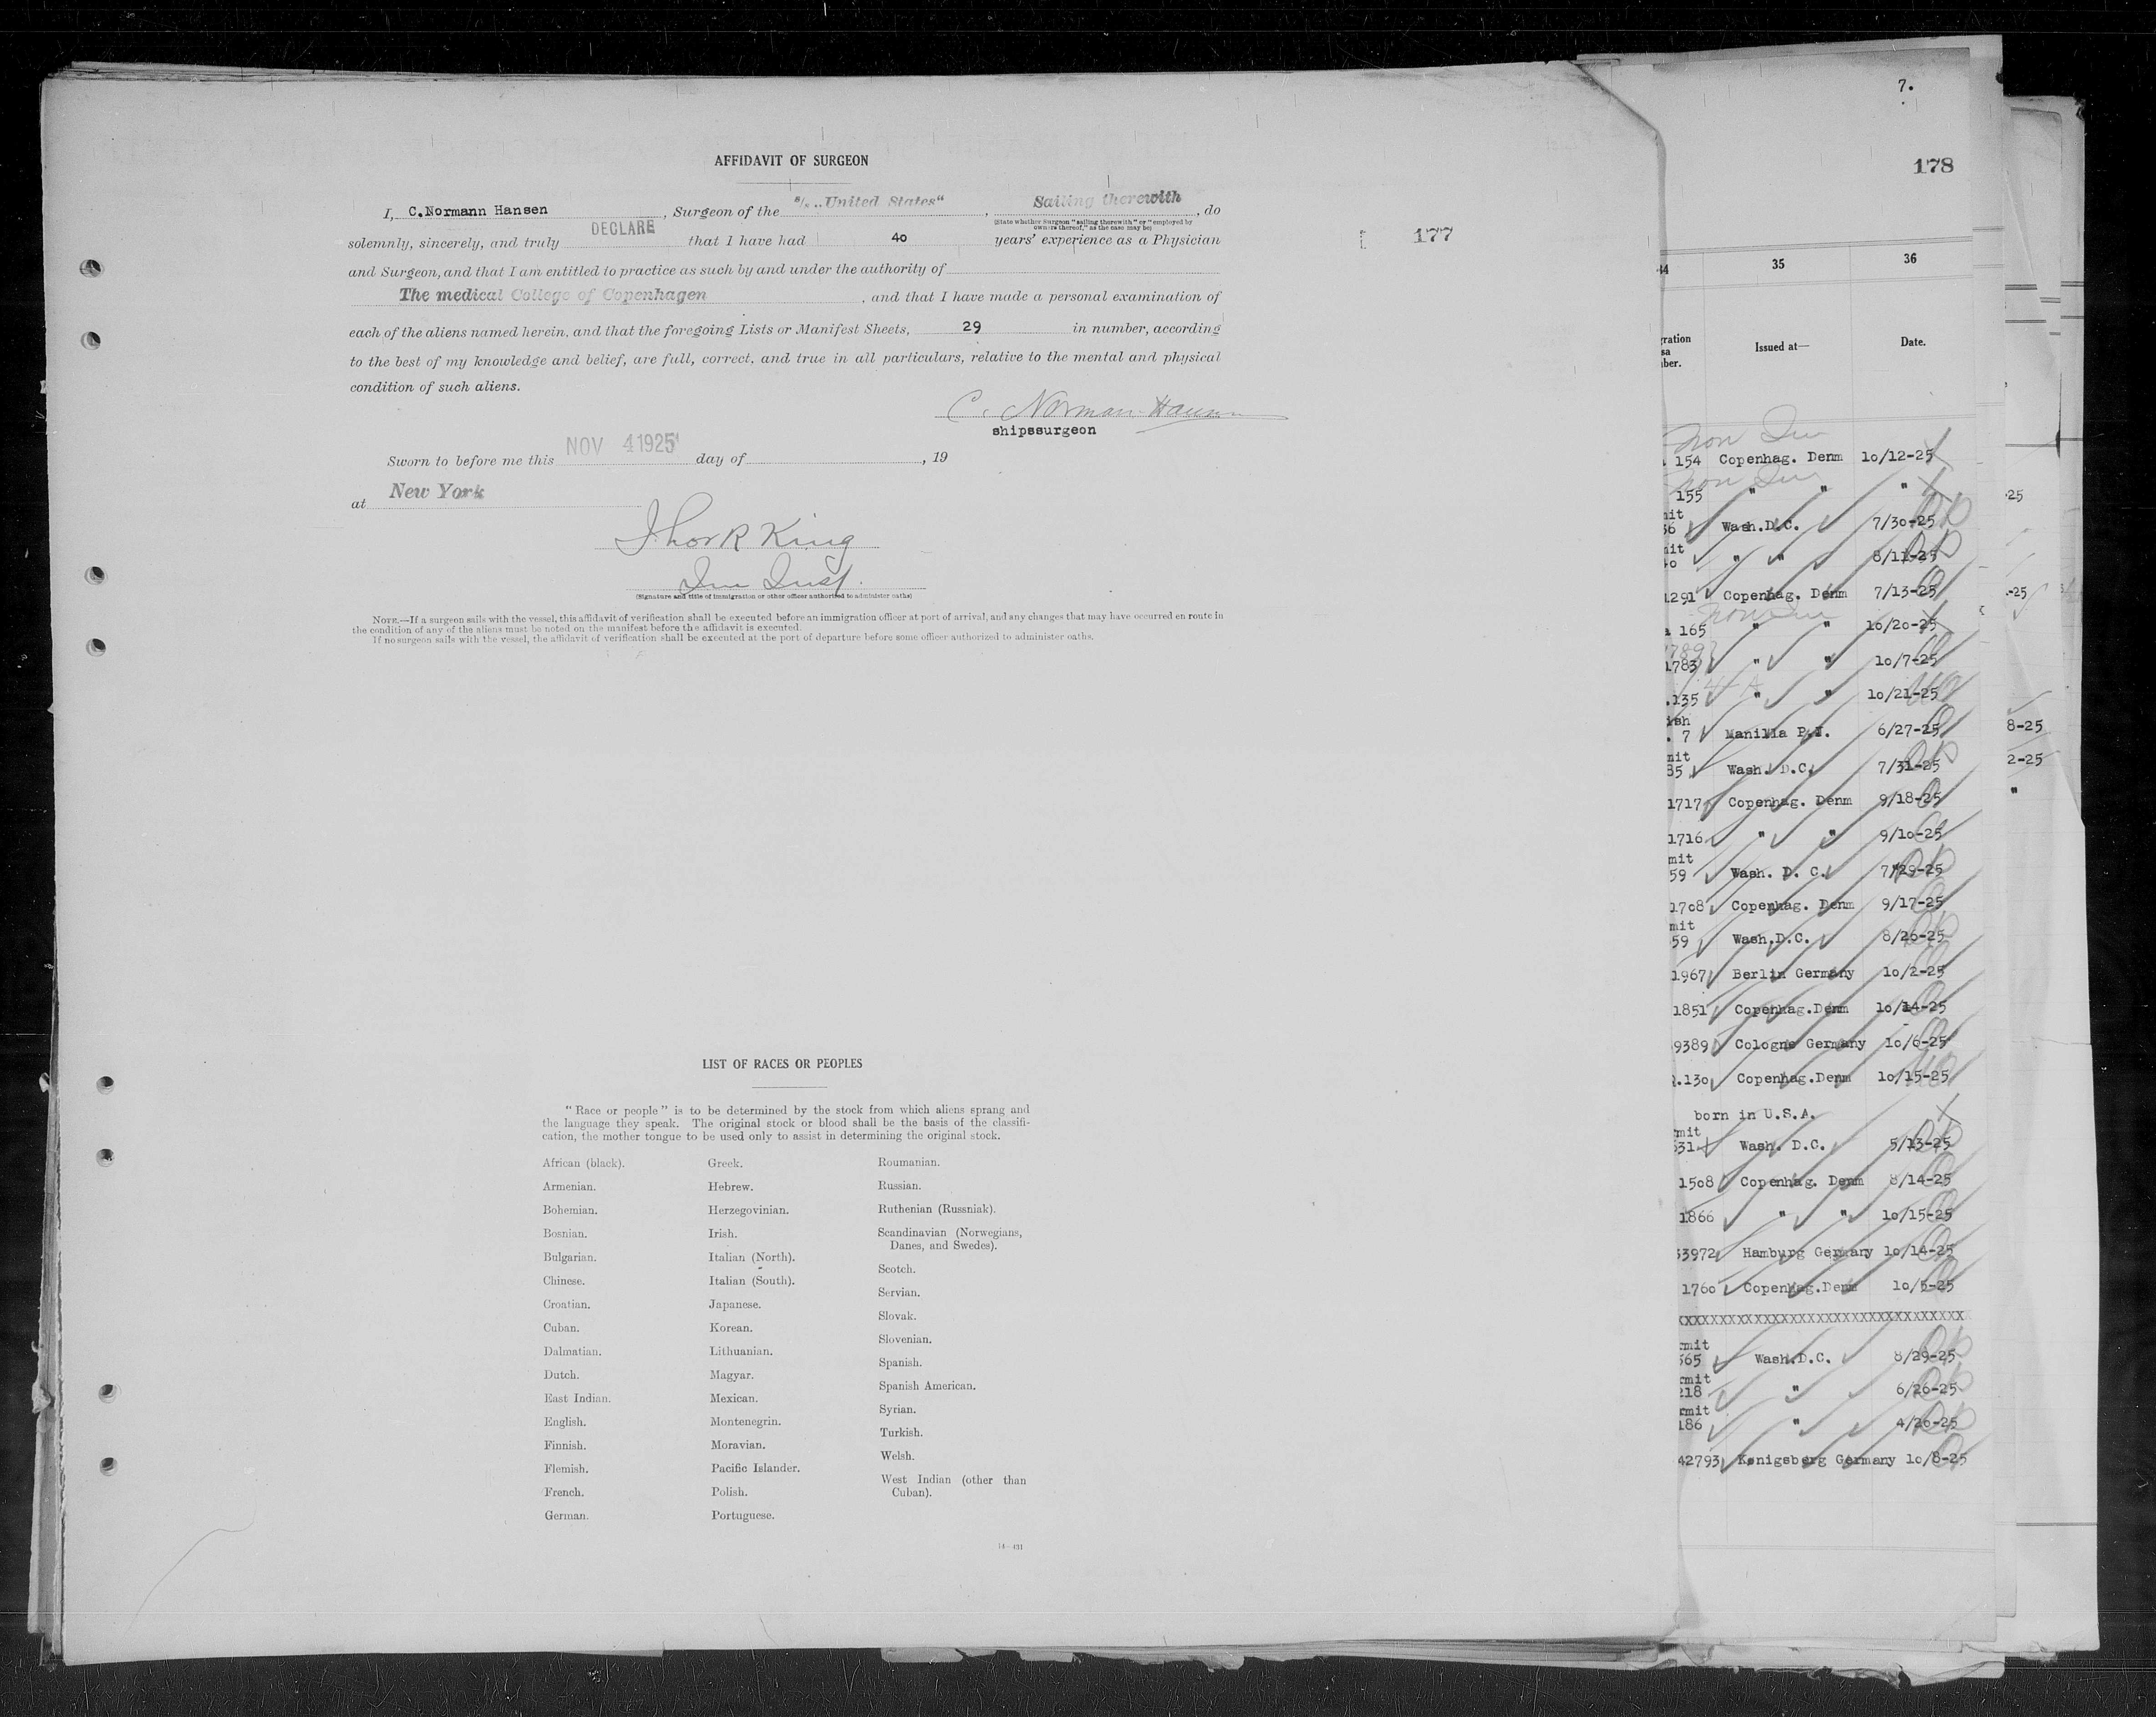 AFFIDAVIT OF SURGEON
I, C.Normann Hansen, Surgeon of the s/s „United States“, Sailing therewith, do
(State whether Surgeon "sailing therewith" or "employed by owners thereof," as the case may be)
solemnly, sincerely, and truly DECLARE that I have had 40 years' experience as a Physician
and Surgeon, and that I am entitled to practice as such by and under the authority of
The medical College of Copenhagen, and that I have made a personal examination of
each of the aliens named herein, and that the foregoing Lists or Manifest Sheets, 29 in number, according
to the best of my knowledge and belief, are full, correct, and true in all particulars, relative to the mental and physical
condition of such aliens.
C. Norman Hansen
shipssurgeon
Sworn to before me this NOV 4 1925 day of , 19
at New York
Thor R King
Im Insp.
(Signature and title of immigration or other officer authorized to administer oaths)
NOTE.—If a surgeon sails with the vessel, this affidavit of verification shall be executed before an immigration officer at port of arrival, and any changes that may have occurred en route in
the condition of any of the aliens must be noted on the manifest before the affidavit is executed.
If no surgeon sails with the vessel, the affidavit of verification shall be executed at the port of departure before some officer authorized to administer oaths.
177
LIST OF RACES OR PEOPLES
"Race or people" is to be determined by the stock from which aliens sprang and
the language they speak. The original stock or blood shall be the basis of the classifi-
cation, the mother tongue to be used only to assist in determining the original stock.
African (black).
Armenian.
Bohemian.
Bosnian.
Bulgarian.
Chinese.
Croatian.
Cuban.
Dalmatian.
Dutch.
East Indian.
English.
Finnish.
Flemish.
French.
German.
Greek.
Hebrew.
Herzegovinian.
Irish.
Italian (North).
Italian (South).
Japanese.
Korean.
Lithuanian.
Magyar.
Mexican.
Montenegrin.
Moravian.
Pacific Islander.
Polish.
Portuguese.
Roumanian.
Russian.
Ruthenian (Russniak).
Scandinavian (Norwegians,
Danes, and Swedes).
Scotch.
Servian.
Slovak.
Slovenian.
Spanish.
Spanish American.
Syrian.
Turkish.
Welsh.
West Indian (other than
Cuban).
14—431
7.
178
35 36
Issued at— Date.
Non Im
154 Copenhag. Denm 10/12-25
Non Im
155 " " "
Wash.D.C. 7/30-25
" " 8/11-25
1291 Copenhag. Denm 7/13-25
Non Im
165 " " 10/20-25
1783 " " 10/7-25
135 " " 10/21-25
7 Manilla P.I. 6/27-25
mit
85 Wash. D.C. 7/31-25
1717 Copenhag. Denm 9/18-25
1716 " " 9/10-25
mit
59 Wash. D. C. 7/29-25
1708 Copenhag. Denm 9/17-25
mit
59 Wash.D.C. 8/26-25
1967 Berlin Germany 10/2-25
1851 Copenhag.Denm 10/14-25
9389 Cologne Germany 10/6-25
.130 Copenhag.Denm 10/15-25
born in U.S.A.
mit
531 Wash. D.C. 5/13-25
1508 Copenhag. Denm 8/14-25
1866 " " 10/15-25
33972 Hamburg Germany 10/14-25
1760 Copenhag.Denm 10/5-25
XXXXXXXXXXXXXXXXXXXXXXXXXXXXXXXX
rmit
565 Wash.D.C. 8/29-25
rmit
218 " 6/26-25
rmit
186 " 4/26-25
42793 Kønigsberg Germany 10/8-25
-25
-25
8-25
2-25
"